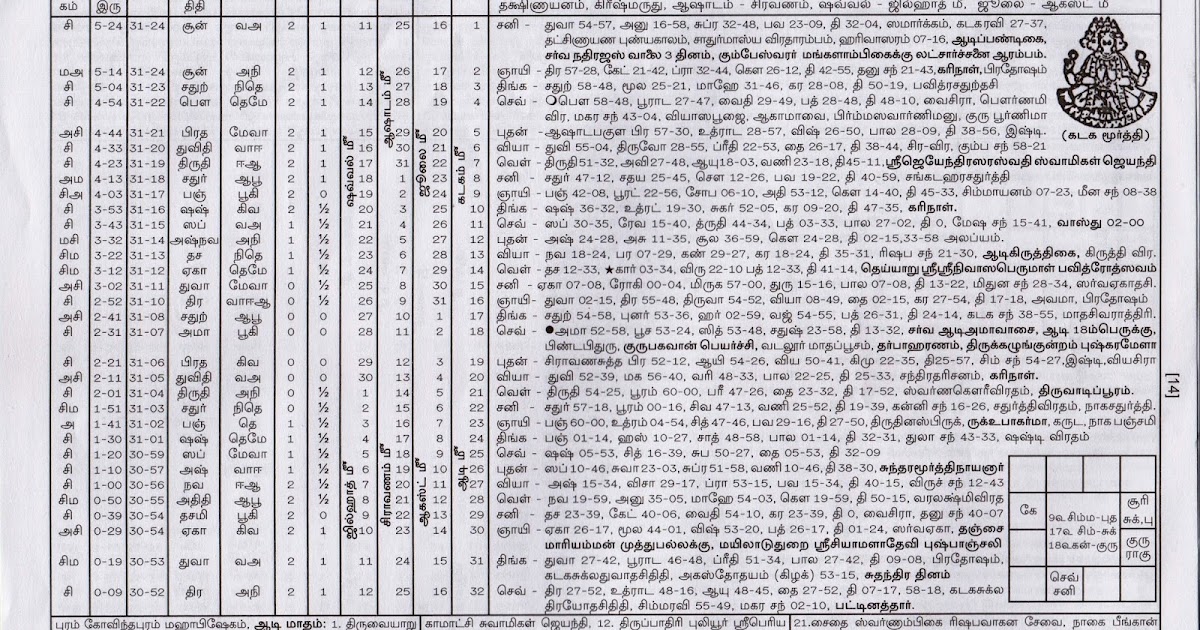 கம் இரு திதி தக்ஷிணாயனம், கிரீஷ்மருது, ஆஷாடம் - சிரவணம், ஷவ்வல் - ஜில்ஹாத் மீ, ஜூலை - ஆகஸ்ட் மீ
சி 5-24 31-24 சூன் வஅ 2 1 11 25 16 1 சனி - துவா 54-57, அனு 16-58, சுப்ர 32-48, பவ 23-09, தி 32-04, ஸமார்க்கம், கடகரவி 27-37,
தட்சிணாயண புண்யகாலம், சாதுர்மாஸ்ய விரதாரம்பம், ஹரிவாஸரம் 07-16, ஆடிப்பண்டிகை,
சர்வ நதிரஜஸ் வாலை 3 தினம், கும்பேஸ்வரர் மங்களாம்பிகைக்கு லட்சார்ச்சனை ஆரம்பம்.
மஅ 5-14 31-24 சூன் அநி 2 1 12 26 17 2 ஞாயி - திர 57-28, கேட் 21-42, ப்ரா 32-44, கௌ 26-12, தி 42-55, தனு சந் 21-43, கரிநாள், பிரதோஷம்
சி 5-04 31-23 சதுற் நிதெ 2 1 13 27 18 3 திங்க - சதுற் 58-48, மூல 25-21, மாஹே 31-46, கர 28-08, தி 50-19, பவித்ரசதுர்தசி
சி 4-54 31-22 பௌ தெமே 2 1 14 28 19 4 செவ் - பௌ 58-48, பூராட 27-47, வைதி 29-49, பத் 28-48, தி 48-10, வைசிரா, பௌர்ணமி
விர, மகர சந் 43-04, வியாஸபூஜை, ஆகாமாவை, பிர்ம்மஸவார்ணிமனு, குரு பூர்ணிமா
அசி 4-44 31-21 பிரத மேவா 2 1 15 29 20 5 புதன் - ஆஷாடபகுள பிர 57-30, உத்ராட 28-57, விஷ் 26-50, பால 28-09, தி 38-56, இஷ்டி.
சி 4-33 31-20 துவிதி வாஈ 2 1 16 30 21 6 வியா - துவி 55-04, திருவோ 28-55, ப்ரீதி 22-53, தை 26-17, தி 38-44, சிர-விர. கும்ப சந் 58-21
சி 4-23 31-19 திருதி ஈஆ 2 1 17 31 22 7 வெள் - திருதி 51-32, அவி 27-48, ஆயு 18-03, வணி 23-18, தி 45-11, ஸ்ரீஜெயேந்திரஸரஸ்வதி ஸ்வாமிகள் ஜெயந்தி
அம 4-13 31-18 சதுர் ஆபூ 2 1 18 1 23 8 சனி - சதுர் 47-12, சதய 25-45, சௌ 12-26, பவ 19-22, தி 40-59, சங்கடஹரசதுர்த்தி
சிஅ 4-03 31-17 பஞ் பூகி 2 0 19 2 24 9 ஞாயி - பஞ் 42-08, பூரட் 22-56, சோப 06-10, அதி 53-12, கௌ 14-40, தி 45-33, சிம்மாயனம் 07-23, மீன சந் 08-38
சி 3-53 31-16 ஷஷ் கிவ 2 ½ 20 3 25 10 திங்க - ஷஷ் 36-32, உத்ரட் 19-30, சுகர் 52-05, கர 09-20, தி 47-35, கரிநாள்.
சி 3-43 31-15 ஸப் வஅ 1 ½ 21 4 26 11 செவ் - ஸப் 30-35, ரேவ 15-40, த்ருதி 44-34, பத் 03-33, பால 27-02, தி 0, மேஷ சந் 15-41, வாஸ்து 02-00
மசி 3-32 31-14 அஷ்நவ அநி 1 ½ 22 5 27 12 புதன் - அஷ் 24-28, அசு 11-35, சூல 36-59, கௌ 24-28, தி 02-15,33-58 அலப்யம்.
சிம 3-22 31-13 தச நிதெ 1 ½ 23 6 28 13 வியா - நவ 18-24, பர 07-29, கண் 29-27, கர 18-24, தி 35-31, ரிஷப சந் 21-30, ஆடிகிருத்திகை, கிருத்தி விர.
சிம 3-12 31-12 ஏகா தெமே 1 ½ 24 7 29 14 வெள் - தச 12-33, ★கார் 03-34, விரு 22-10 பத் 12-33, தி 41-14, தெய்யாறு ஸ்ரீஸ்ரீநிவாஸபெருமாள் பவித்ரோத்ஸவம்
அசி 3-02 31-11 துவா மேவா 0 ½ 25 8 30 15 சனி - ஏகா 07-08, ரோகி 00-04, மிருக 57-00, துரு 15-16, பால 07-08, தி 13-22, மிதுன சந் 28-34, ஸர்வஏகாதசி.
சி 2-52 31-10 திர வாஈஆ 0 ½ 26 9 31 16 ஞாயி - துவா 02-15, திர 55-48, திருவா 54-52, வியா 08-49, தை 02-15, கர 27-54, தி 17-18, அவமா, பிரதோஷம்
அசி 2-41 31-08 சதுற் ஆபூ 0 0 27 10 1 17 திங்க - சதுற் 54-58, புனர் 53-36, ஹர் 02-59, வஜ் 54-55, பத் 26-31, தி 24-14, கடக சந் 38-55, மாதசிவராத்திரி.
சி 2-31 31-07 அமா பூகி 0 0 28 11 2 18 செவ் - ●அமா 52-58, பூச 53-24, ஸித் 53-48, சதுஷ் 23-58, தி 13-32, சர்வ ஆடிஅமாவாசை, ஆடி 18ம்பெருக்கு,
பிண்டபிதுரு, குருபகவான் பெயர்ச்சி, வடலூர் மாதப்பூசம், தர்பாஹரணம், திருக்கழுங்குன்றம் புஷ்கரமேளா
சி 2-21 31-06 பிரத கிவ 0 0 29 12 3 19 புதன் - சிராவணசுத்த பிர 52-12, ஆயி 54-26, விய 50-41, கிமு 22-35, தி25-57, சிம் சந் 54-27,இஷ்டி,வியசிரா
அசி 2-11 31-05 துவிதி வஅ 0 0 30 13 4 20 வியா - துவி 52-39, மக 56-40, வரி 48-33, பால 22-25, தி 25-33, சந்திரதரிசனம், கரிநாள்.
சி 2-01 31-04 திருதி அநி 0 ½ 1 14 5 21 வெள் - திருதி 54-25, பூரம் 60-00, பரீ 47-26, தை 23-32, தி 17-52, ஸ்வர்ணகௌரிவிரதம், திருவாடிப்பூரம்.
சிம 1-51 31-03 சதுர் நிதெ 0 ½ 2 15 6 22 சனி - சதுர் 57-18, பூரம் 00-16, சிவ 47-13, வணி 25-52, தி 19-39, கன்னி சந் 16-26, சதுர்த்திவிரதம், நாகசதுர்த்தி.
அ 1-41 31-02 பஞ் தெ 1 ½ 3 16 7 23 ஞாயி - பஞ் 60-00, உத்ரம் 04-54, சித் 47-46, பவ 29-16, தி 27-50, திருதினஸ்பிருக், ருக்உபாகர்மா, கருட, நாக பஞ்சமி
சி 1-30 31-01 ஷஷ் தெமே 1 ½ 4 17 8 24 திங்க - பஞ் 01-14, ஹஸ் 10-27, சாத் 48-58, பால 01-14, தி 32-31, துலா சந் 43-33, ஷஷ்டி விரதம்
சி 1-20 30-59 ஸப் மேவா 1 ½ 5 18 9 25 செவ் - ஷஷ் 05-53, சித் 16-39, சுப 50-27, தை 05-53, தி 32-09
சி 1-10 30-57 அஷ் வாஈ 1 ½ 6 19 10 26 புதன் - ஸப் 10-46, சுவா 23-03, சுப்ர 51-58, வணி 10-46, தி 38-30, சுந்தரமூர்த்திநாயனார்
சி 1-00 30-56 நவ ஈஆ 2 ½ 7 20 11 27 வியா - அஷ் 15-34, விசா 29-17, ப்ரா 53-15, பவ 15-34, தி 40-15, விருச் சந் 12-43
சிம 0-50 30-55 அதிதி ஆபூ 2 ½ 8 21 12 28 வெள் - நவ 19-59, அனு 35-05, மாஹே 54-03, கௌ 19-59, தி 50-15, வரலக்ஷ்மிவிரத
சி 0-39 30-54 தசமி பூகி 2 0 9 22 13 29 சனி - தச 23-39, கேட் 40-06, வைதி 54-10, கர 23-39, தி 0, வைசிரா, தனு சந் 40-07
அசி 0-29 30-54 ஏகா கிவ 2 1 10 23 14 30 ஞாயி - ஏகா 26-17, மூல 44-01, விஷ் 53-20, பத் 26-17, தி 01-24, ஸர்வஏகா, தஞ்சை
மாரியம்மன் முத்துபல்லக்கு, மயிலாடுதுறை ஸ்ரீசியாமளாதேவி புஷ்பாஞ்சலி
சிம 0-19 30-53 துவா வஅ 2 1 11 24 15 31 திங்க - துவா 27-42, பூராட 46-48, ப்ரீதி 51-34, பால 27-42, தி 09-08, பிரதோஷம்,
கடகசுக்லதுவாதசிதிதி, அகஸ்தோதயம் (கிழக்) 53-15, சுதந்திர தினம்
சி 0-09 30-52 திர அநி 2 1 12 25 16 32 செவ் - திர 27-52, உத்ராட 48-16, ஆயு 48-45, தை 27-52, தி 07-17, 58-18, கடகசுக்ல
திரயோதசிதிதி, சிம்மரவி 55-49, மகர சந் 02-10, பட்டினத்தார்.
ஷவ்வல் மீ
ஆஷாடம் மீ
ஜூலை மீ
கடகம் மீ
ஜில்ஹாத் மீ
சிராவணம் மீ
ஆகஸ்ட் மீ
ஆடி மீ
(கடக மூர்த்தி)
[14]
கே
9வ.சிம்-புத
17வ. சிம்-சுக்
18வகன்-குரு
சூரி
சுக்,பு
குரு
ராகு
செவ்
சனி
புரம் கோவிந்தபுரம் மஹாபிஷேகம், ஆடி மாதம்: 1. திருவையாறு காமாட்சி சுவாமிகள் ஜெயந்தி, 12. திருப்பாதிரி புலியூர் ஸ்ரீபெரிய 21.சைதை ஸ்வர்ணாம்பிகை ரிஷபவாகன சேவை, நாகை பீங்கான்